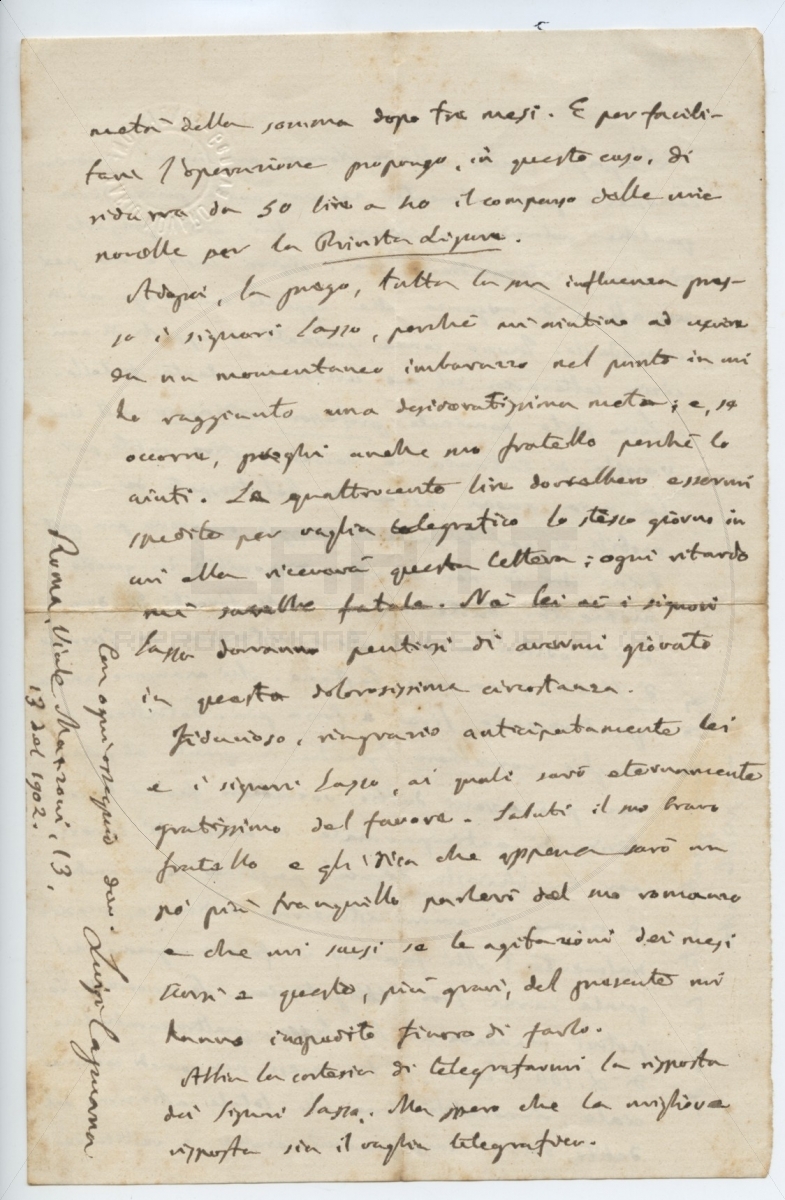 metà della somma dopo tre mesi. E per facili-
tare l'operazione propongo, in questo caso, di
ridurre da 50 lire a 40 il compenso delle mie
novelle per la Rivista Ligure.
Adopri, la prego, tutta la sua influenza pres-
so i signori Sasso, perchè mi aiutino ad uscire
da un momentaneo imbarazzo nel punto in cui
ho raggiunto una desideratissima meta; e, se
occorre, preghi anche suo fratello perchè lo
aiuti. Le quattrocento lire dovrebbero essermi
spedite per vaglia telegrafico lo stesso giorno in
cui ella riceverà questa lettera; ogni ritardo
mi sarebbe fatale. Nè lei nè i signori
Sasso dovranno pentirsi di avermi giovato
in questa dolorosissima circostanza.
Fiducioso, ringrazio anticipatamente lei
e i signori Sasso, ai quali sarò eternamente
gratissimo del favore. Saluti il suo bravo
fratello e gli dica che appena sarò un
po' più tranquillo parlerò del suo romanzo
e che mi scusi se le agitazioni dei mesi
scorsi e queste, più gravi, del presente mi
hanno impedito finora di farlo.
Abbia la cortesia di telegrafarmi la risposta
dei Signori Sasso. Ma spero che la migliore
risposta sia il vaglia telegrafico.
Con ogni ossequio dev. Luigi Capuana
Roma, Viale Manzoni, 13,
13 del 1902.